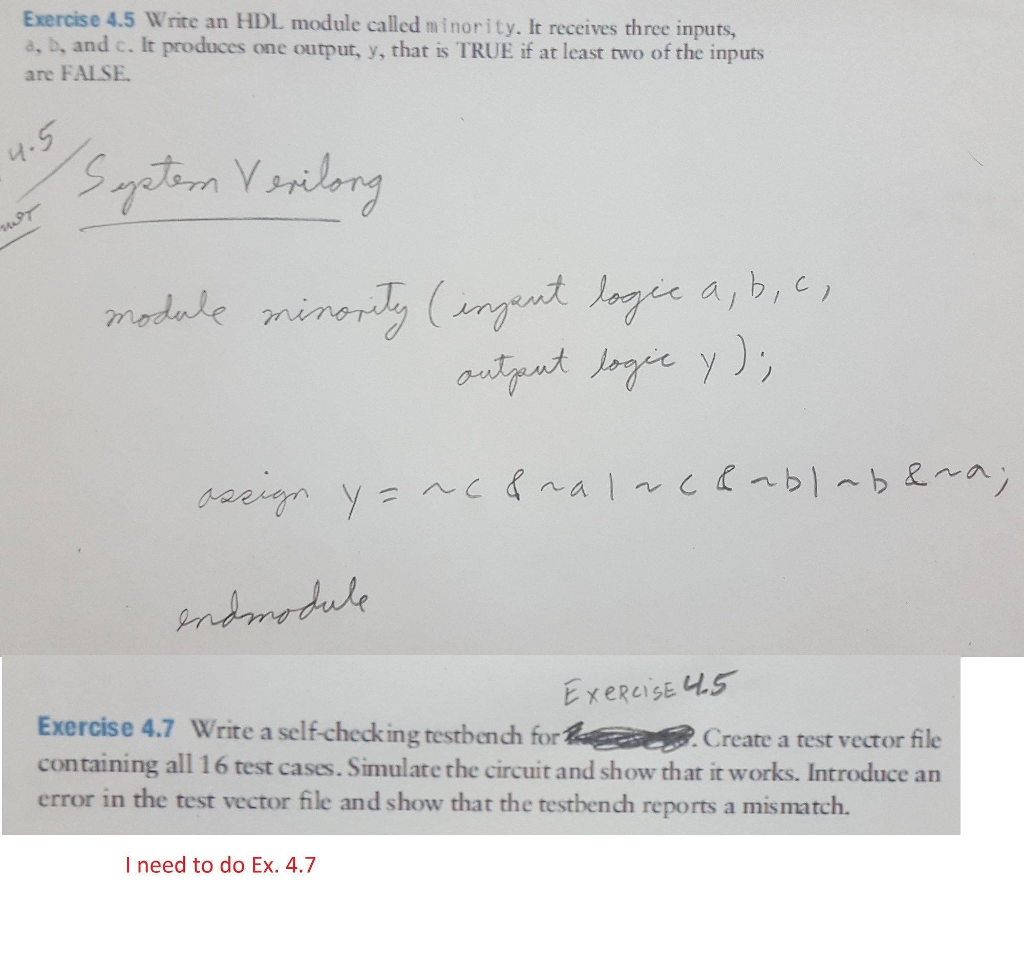 Exercise 4.5 Write an HDL module called minority. It receives three inputs,
a, b, and c. It produces one output, y, that is TRUE if at least two of the inputs
are FALSE.
4.5
System Verilong
module minority (input logic a, b, c,
output logic y);
assign y = ~c & ~a | ~c & ~b | ~b & ~a;
endmodule
EXERCISE 4.5
Exercise 4.7 Write a self-checking testbench for . Create a test vector file
containing all 16 test cases. Simulate the circuit and show that it works. Introduce an
error in the test vector file and show that the testbench reports a mismatch.
I need to do Ex. 4.7